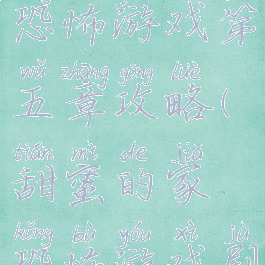 恐怖游戏第
wǔ zhāng gōng lüè
五章攻略(
tián mì de jiā
甜蜜的家
kǒng bù yóu xì jù
恐怖游戏剧